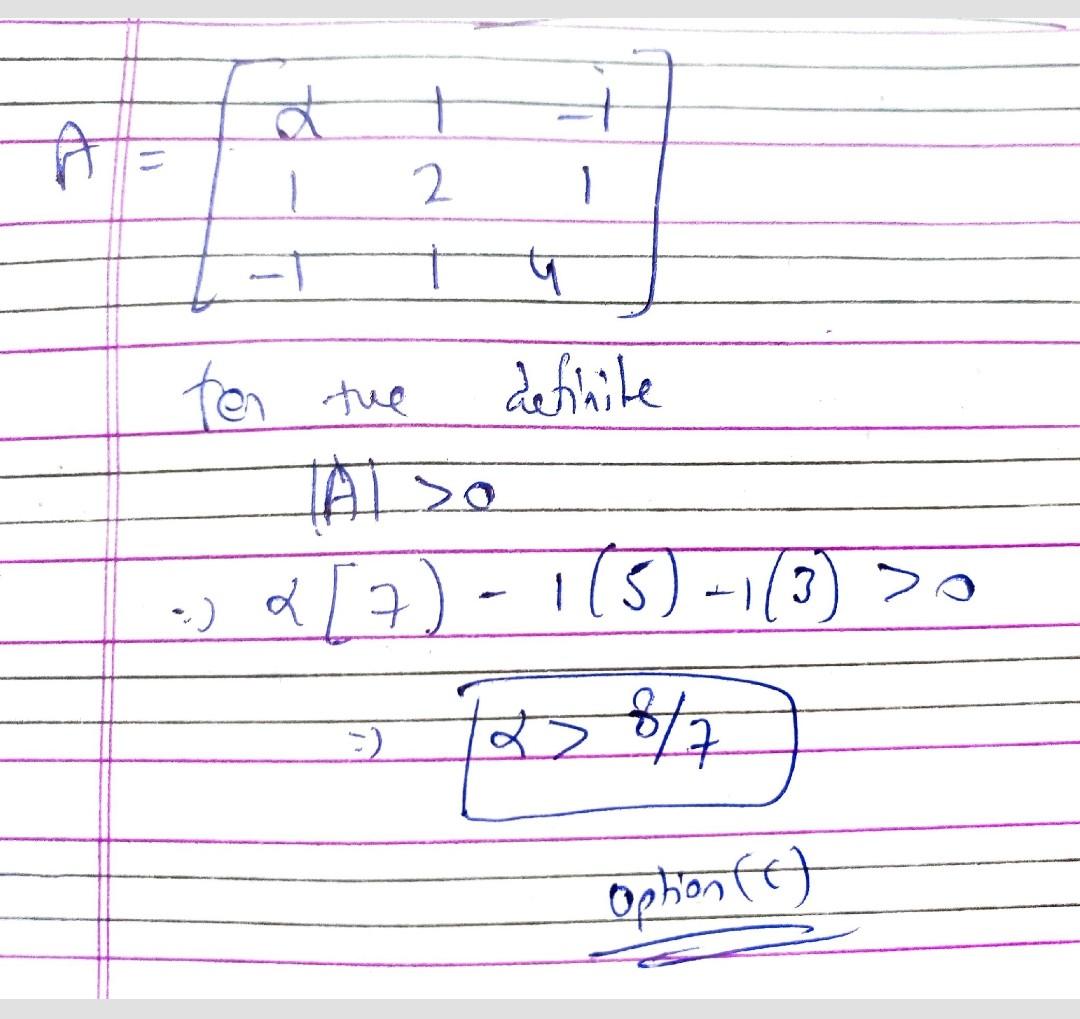 A = [ α 1 -1
1 2 1
-1 1 4 ]
for +ve definite
|A| >0
=> α[7) - 1(5) -1(3) >0
=> α > 8/7
option (c)